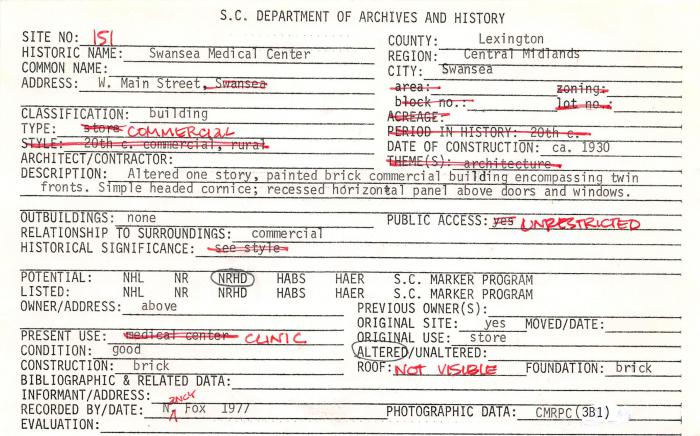 S.C. DEPARTMENT OF ARCHIVES AND HISTORY
SITE NO: 151
COUNTY: Lexington
HISTORIC NAME: Swansea Medical Center
REGION: Central Midlands
COMMON NAME:
CITY: Swansea
ADDRESS: W. Main Street, Swansea
area: zoning:
block no.: lot no.:
CLASSIFICATION: building
ACREAGE:
TYPE: store COMMERCIAL
PERIOD IN HISTORY: 20th c.
STYLE: 20th c. commercial, rural
DATE OF CONSTRUCTION: ca. 1930
ARCHITECT/CONTRACTOR:
THEME(S): architecture
DESCRIPTION: Altered one story, painted brick commercial building encompassing twin
fronts. Simple headed cornice; recessed horizontal panel above doors and windows.
OUTBUILDINGS: none
PUBLIC ACCESS: yes UNRESTRICTED
RELATIONSHIP TO SURROUNDINGS: commercial
HISTORICAL SIGNIFICANCE: see style
POTENTIAL: NHL NR NRHD HABS HAER S.C. MARKER PROGRAM
LISTED: NHL NR NRHD HABS HAER S.C. MARKER PROGRAM
OWNER/ADDRESS: above
PREVIOUS OWNER(S):
ORIGINAL SITE: yes MOVED/DATE:
PRESENT USE: medical center CLINIC
ORIGINAL USE: store
CONDITION: good
ALTERED/UNALTERED:
CONSTRUCTION: brick
ROOF: NOT VISIBLE FOUNDATION: brick
BIBLIOGRAPHIC & RELATED DATA:
INFORMANT/ADDRESS:
RECORDED BY/DATE: Nancy Fox 1977
PHOTOGRAPHIC DATA: CMRPC (3B1)
EVALUATION: